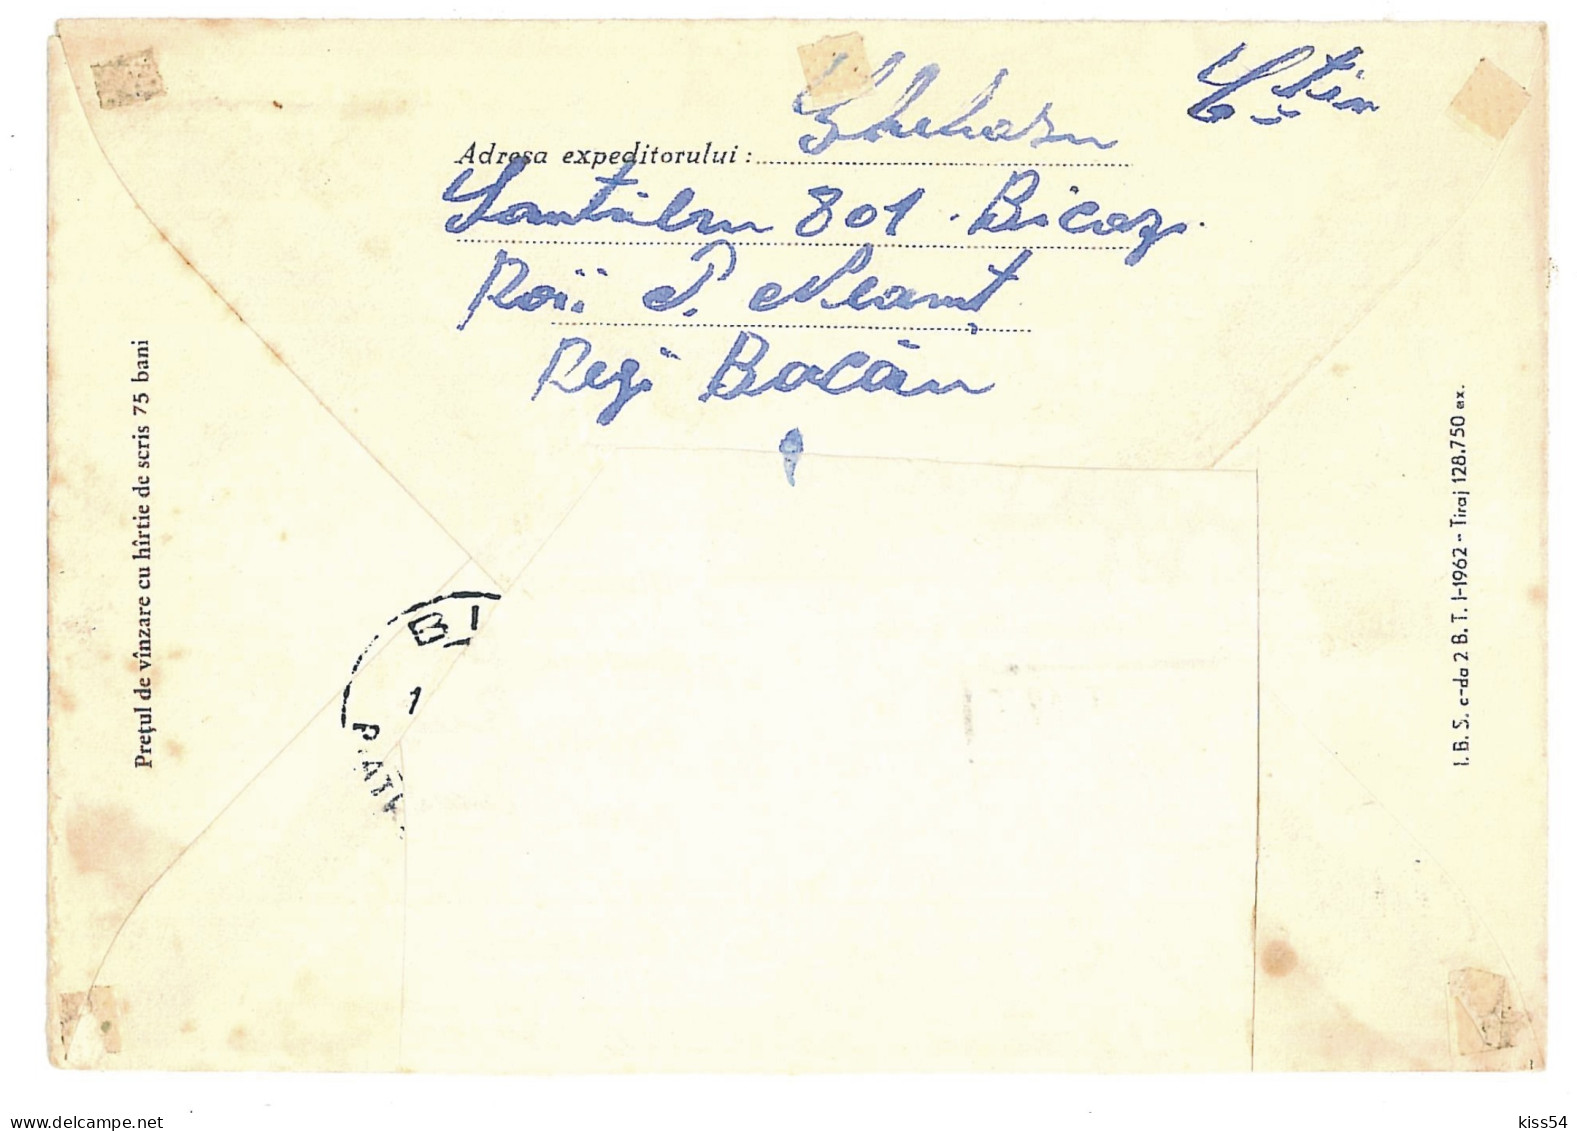 C-tin
Adresa expeditorului :
Șantierul 801 Bicaz
Rai. P. Neamț
Reg. Bacău
Prețul de vînzare cu hîrtie de scris 75 bani
I. B. S. c-da 2 B. T. I-1962 - Tiraj 128.750 ex.
BI
1
PIAT
delcampe.net
kiss54